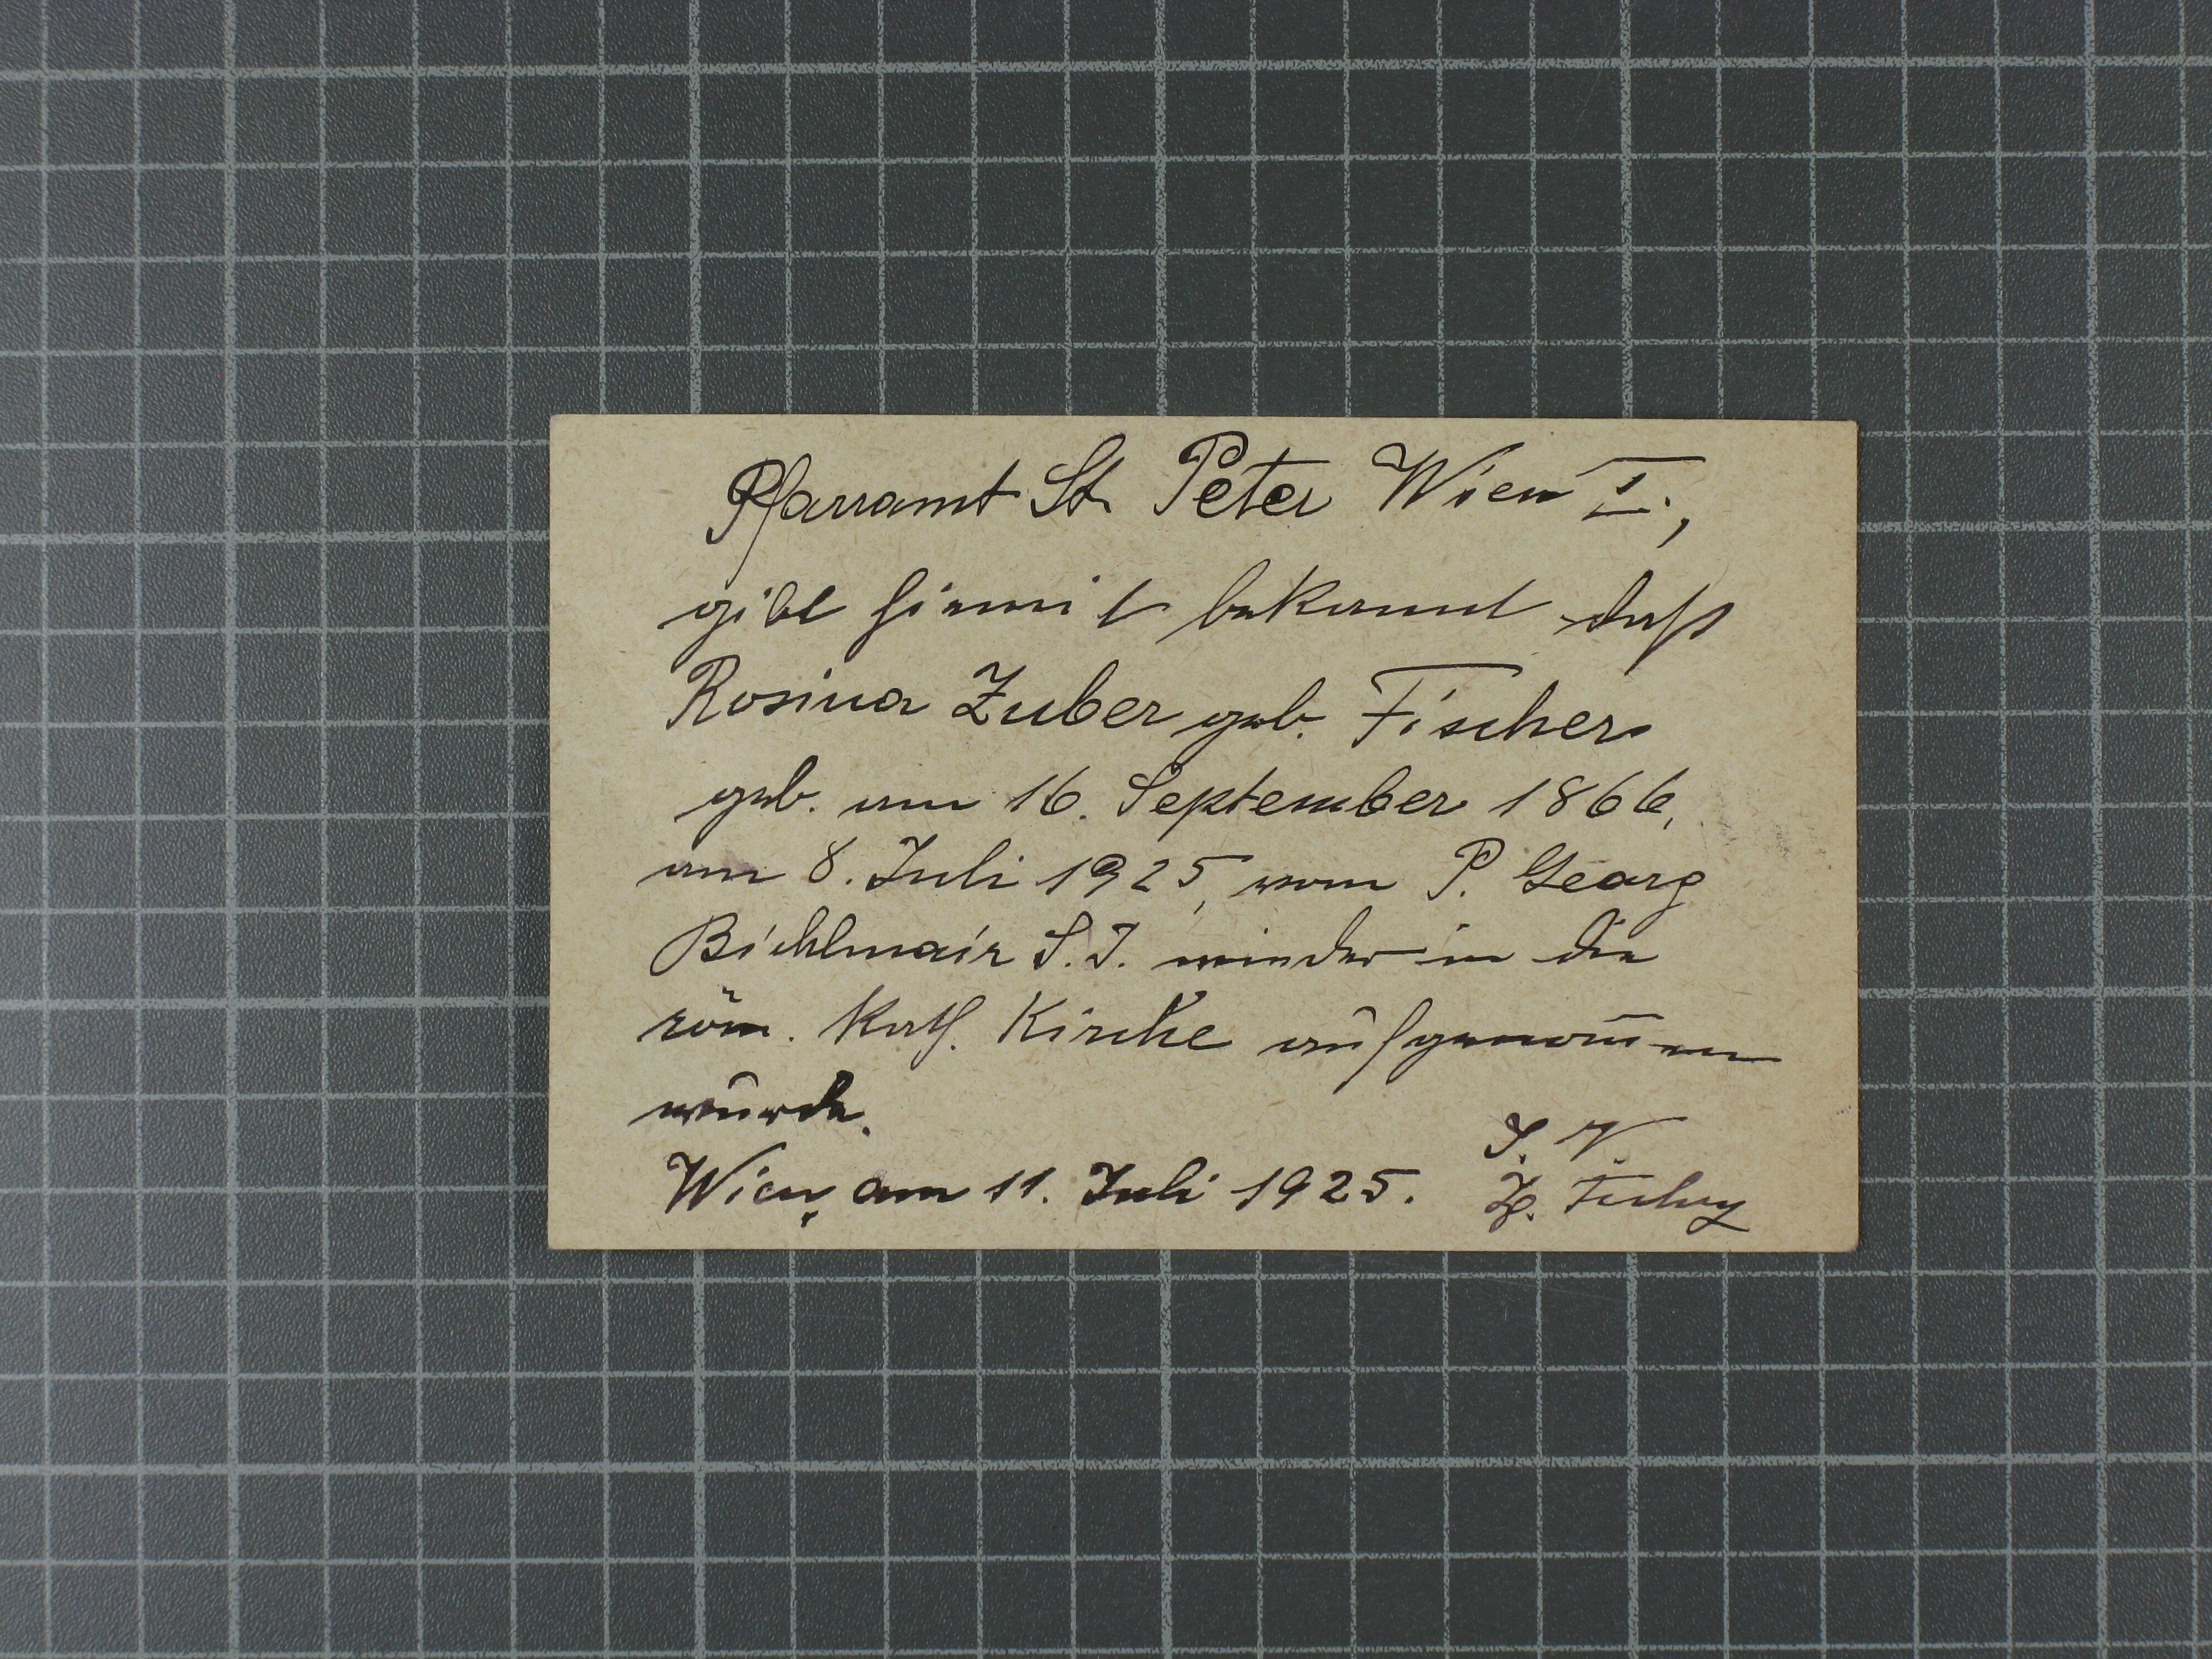 Pfarramt St. Peter Wien I.,
gibt hiermit bekannt daß
Rosina Zuber geb. Fischer
geb. am 16. September 1866,
am 8. Juli 1925, vom P. Georg
Bichlmair S.J. wieder in die
röm. kath. Kirche aufgenom̄en
wurde.
Wien, am 11. Juli 1925.